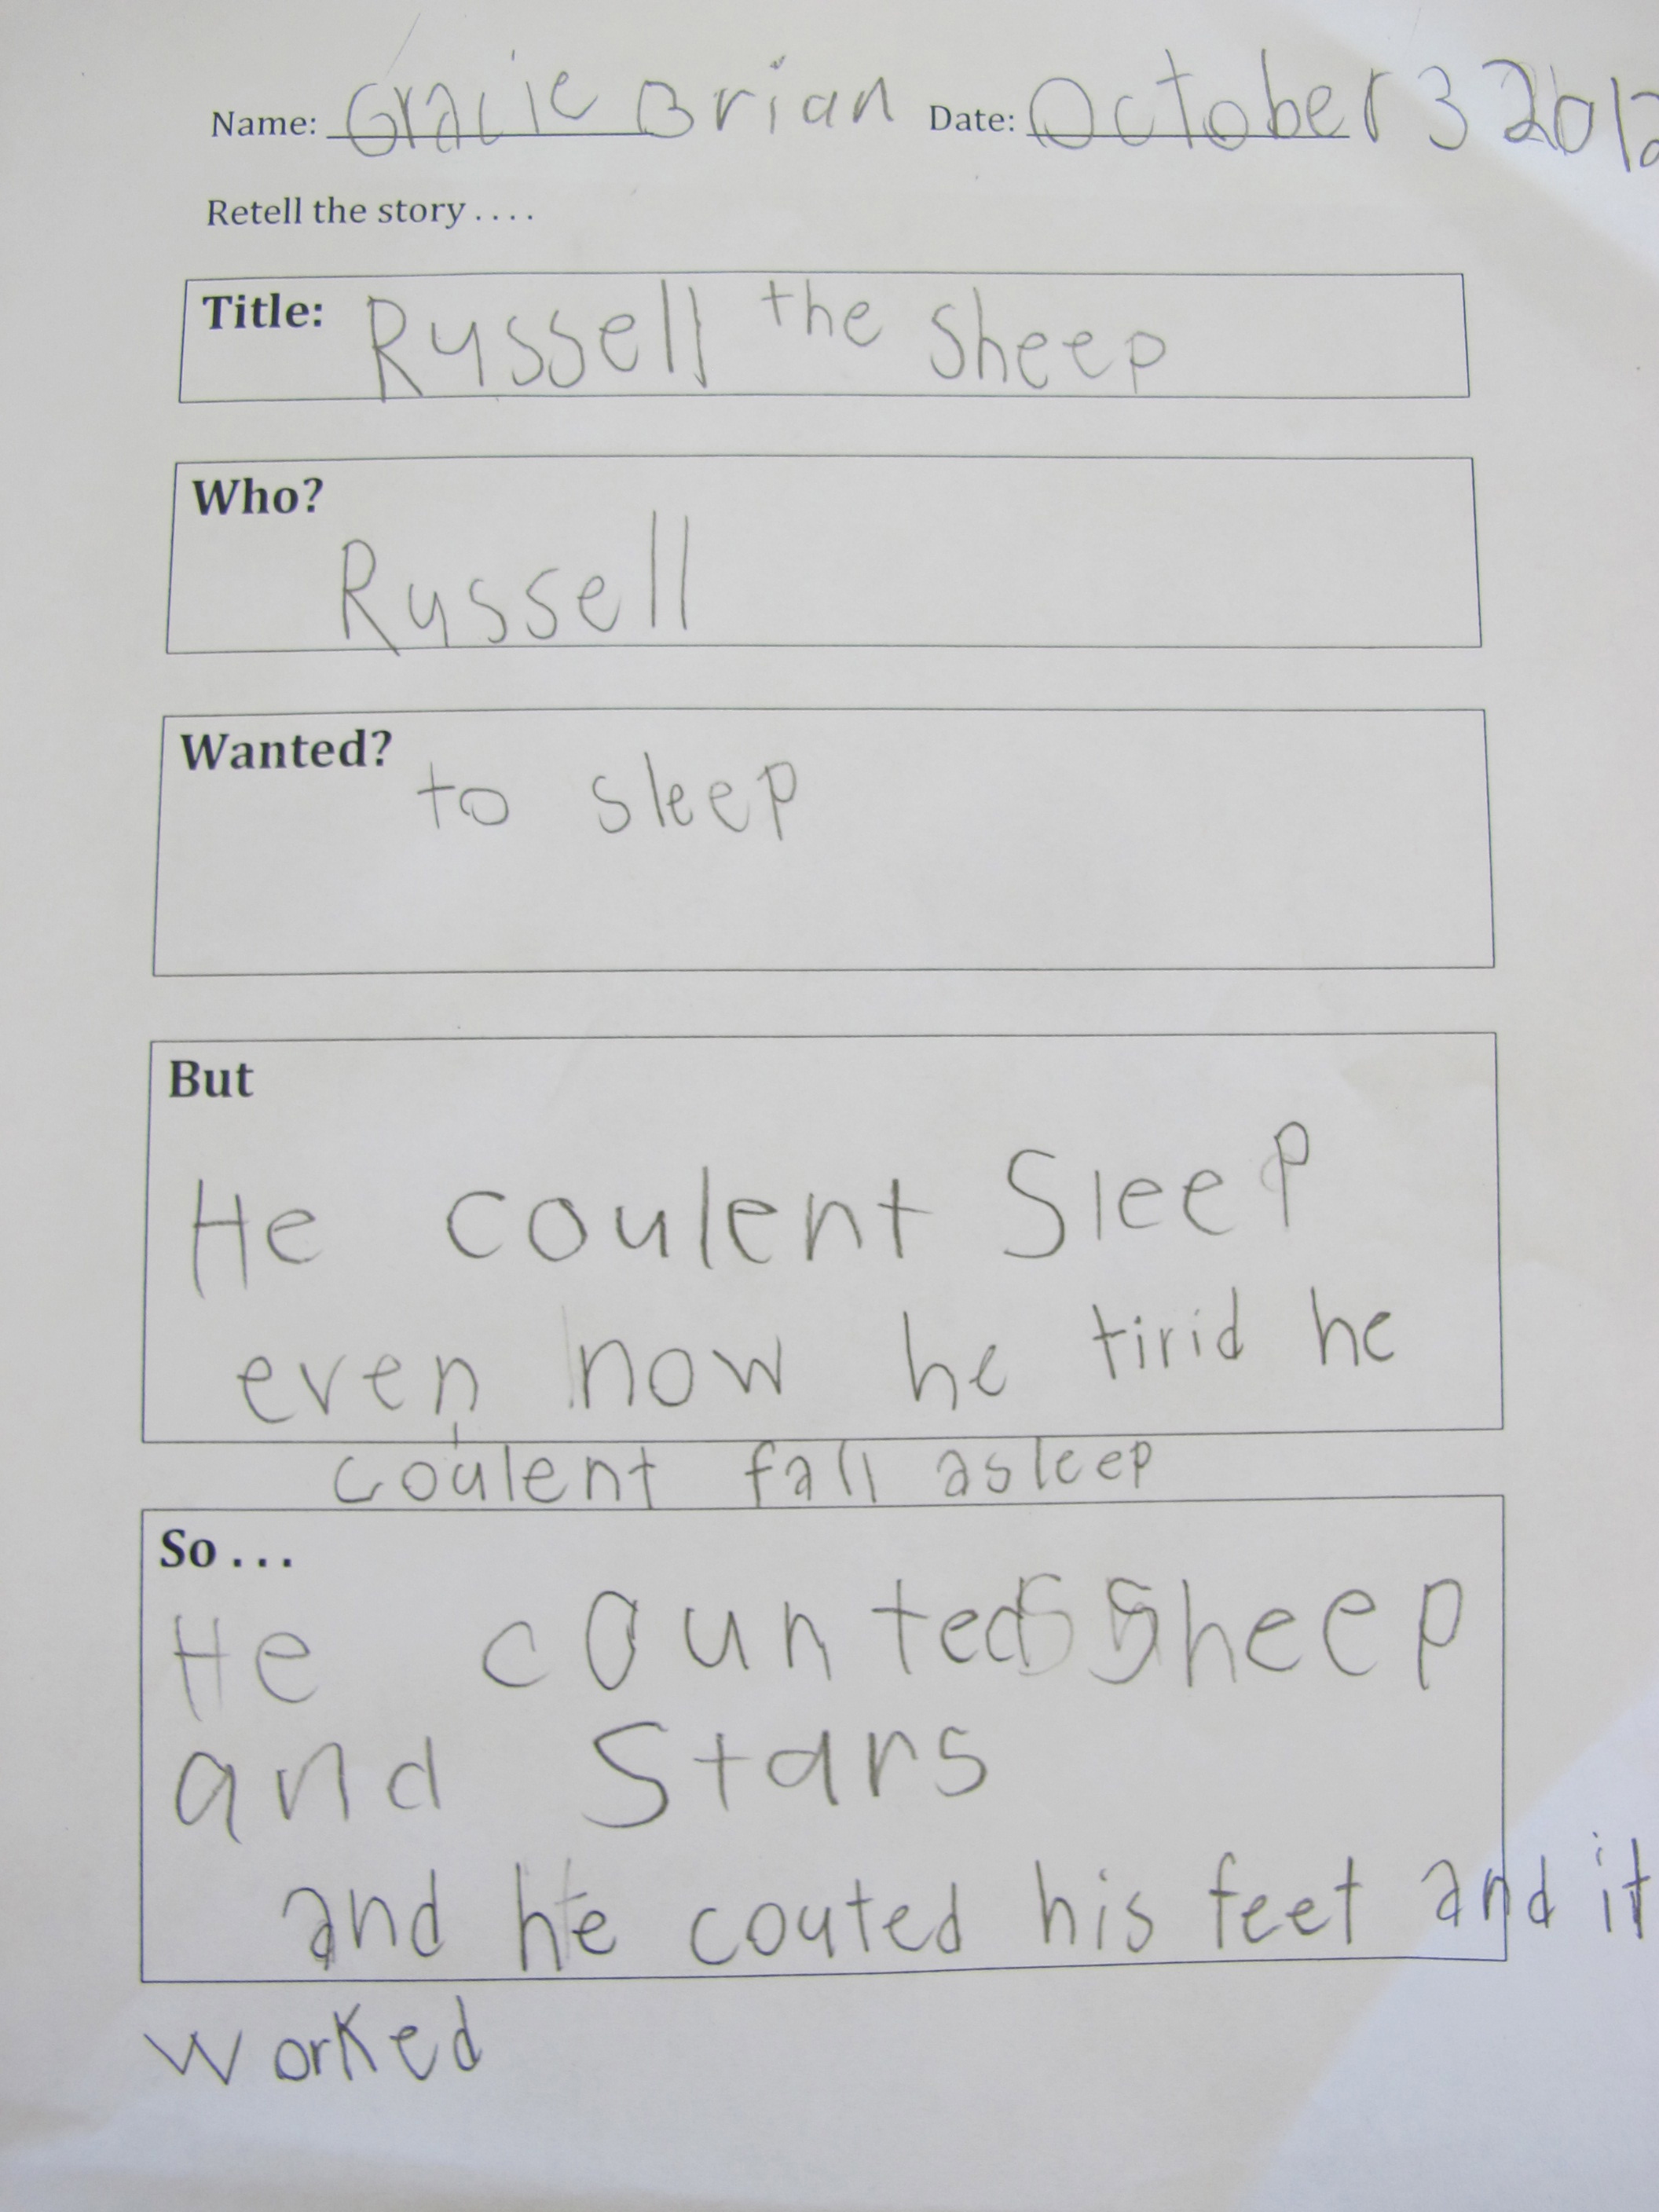 Name: Gracie Brian Date: October 3 2012
Retell the story . . . .
Title: Russell the Sheep
Who?
Russell
Wanted?
to sleep
But
He coulent Sleep
even now he tirid he
coulent fall asleep
So . . .
He counted Sheep
and Stars
and he couted his feet and it
worked